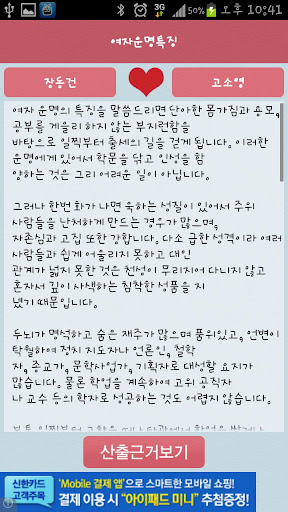 3G 오후 10:41
여자운명특징
장동건
고소영
여자 운명의 특징을 말씀드리면 단아한 몸가짐과 용모,
공부를 게을리 하지 않는 부지런함을
바탕으로 일찍부터 출세의 길을 걷게 됩니다. 이러한
운명에게 있어서 학문을 닦고 인성을 함
양하는 것은 그리 어려운 일이 아닙니다.
그러나 한번 화가 나면 욱하는 성질이 있어서 주위
사람들을 난처하게 만드는 경우가 많으며,
자존심과 고집 또한 강합니다. 다소 급한 성격이라 여러
사람들과 쉽게 어울리지 못하고 대인
관계가 넓지 못한 것은 천성이 무리지어 다니지 않고
혼자서 깊이 사색하는 침착한 성품을 지
녔기 때문입니다.
두뇌가 명석하고 숨은 재주가 많으며 품위있고, 언변이
탁월하여 정치 지도자나 언론인, 철학
자, 종교가, 문학사업가, 기획자로 대성할 요지가
많습니다. 물론 학업을 계속하여 고위 공직자
나 교수 등의 학자로 성공하는 것도 어렵지 않습니다.
산출근거보기
신한카드 고객주목
'Mobile 결제 앱'으로 스마트한 모바일 쇼핑!
결제 이용 시 "아이패드 미니" 추첨증정!